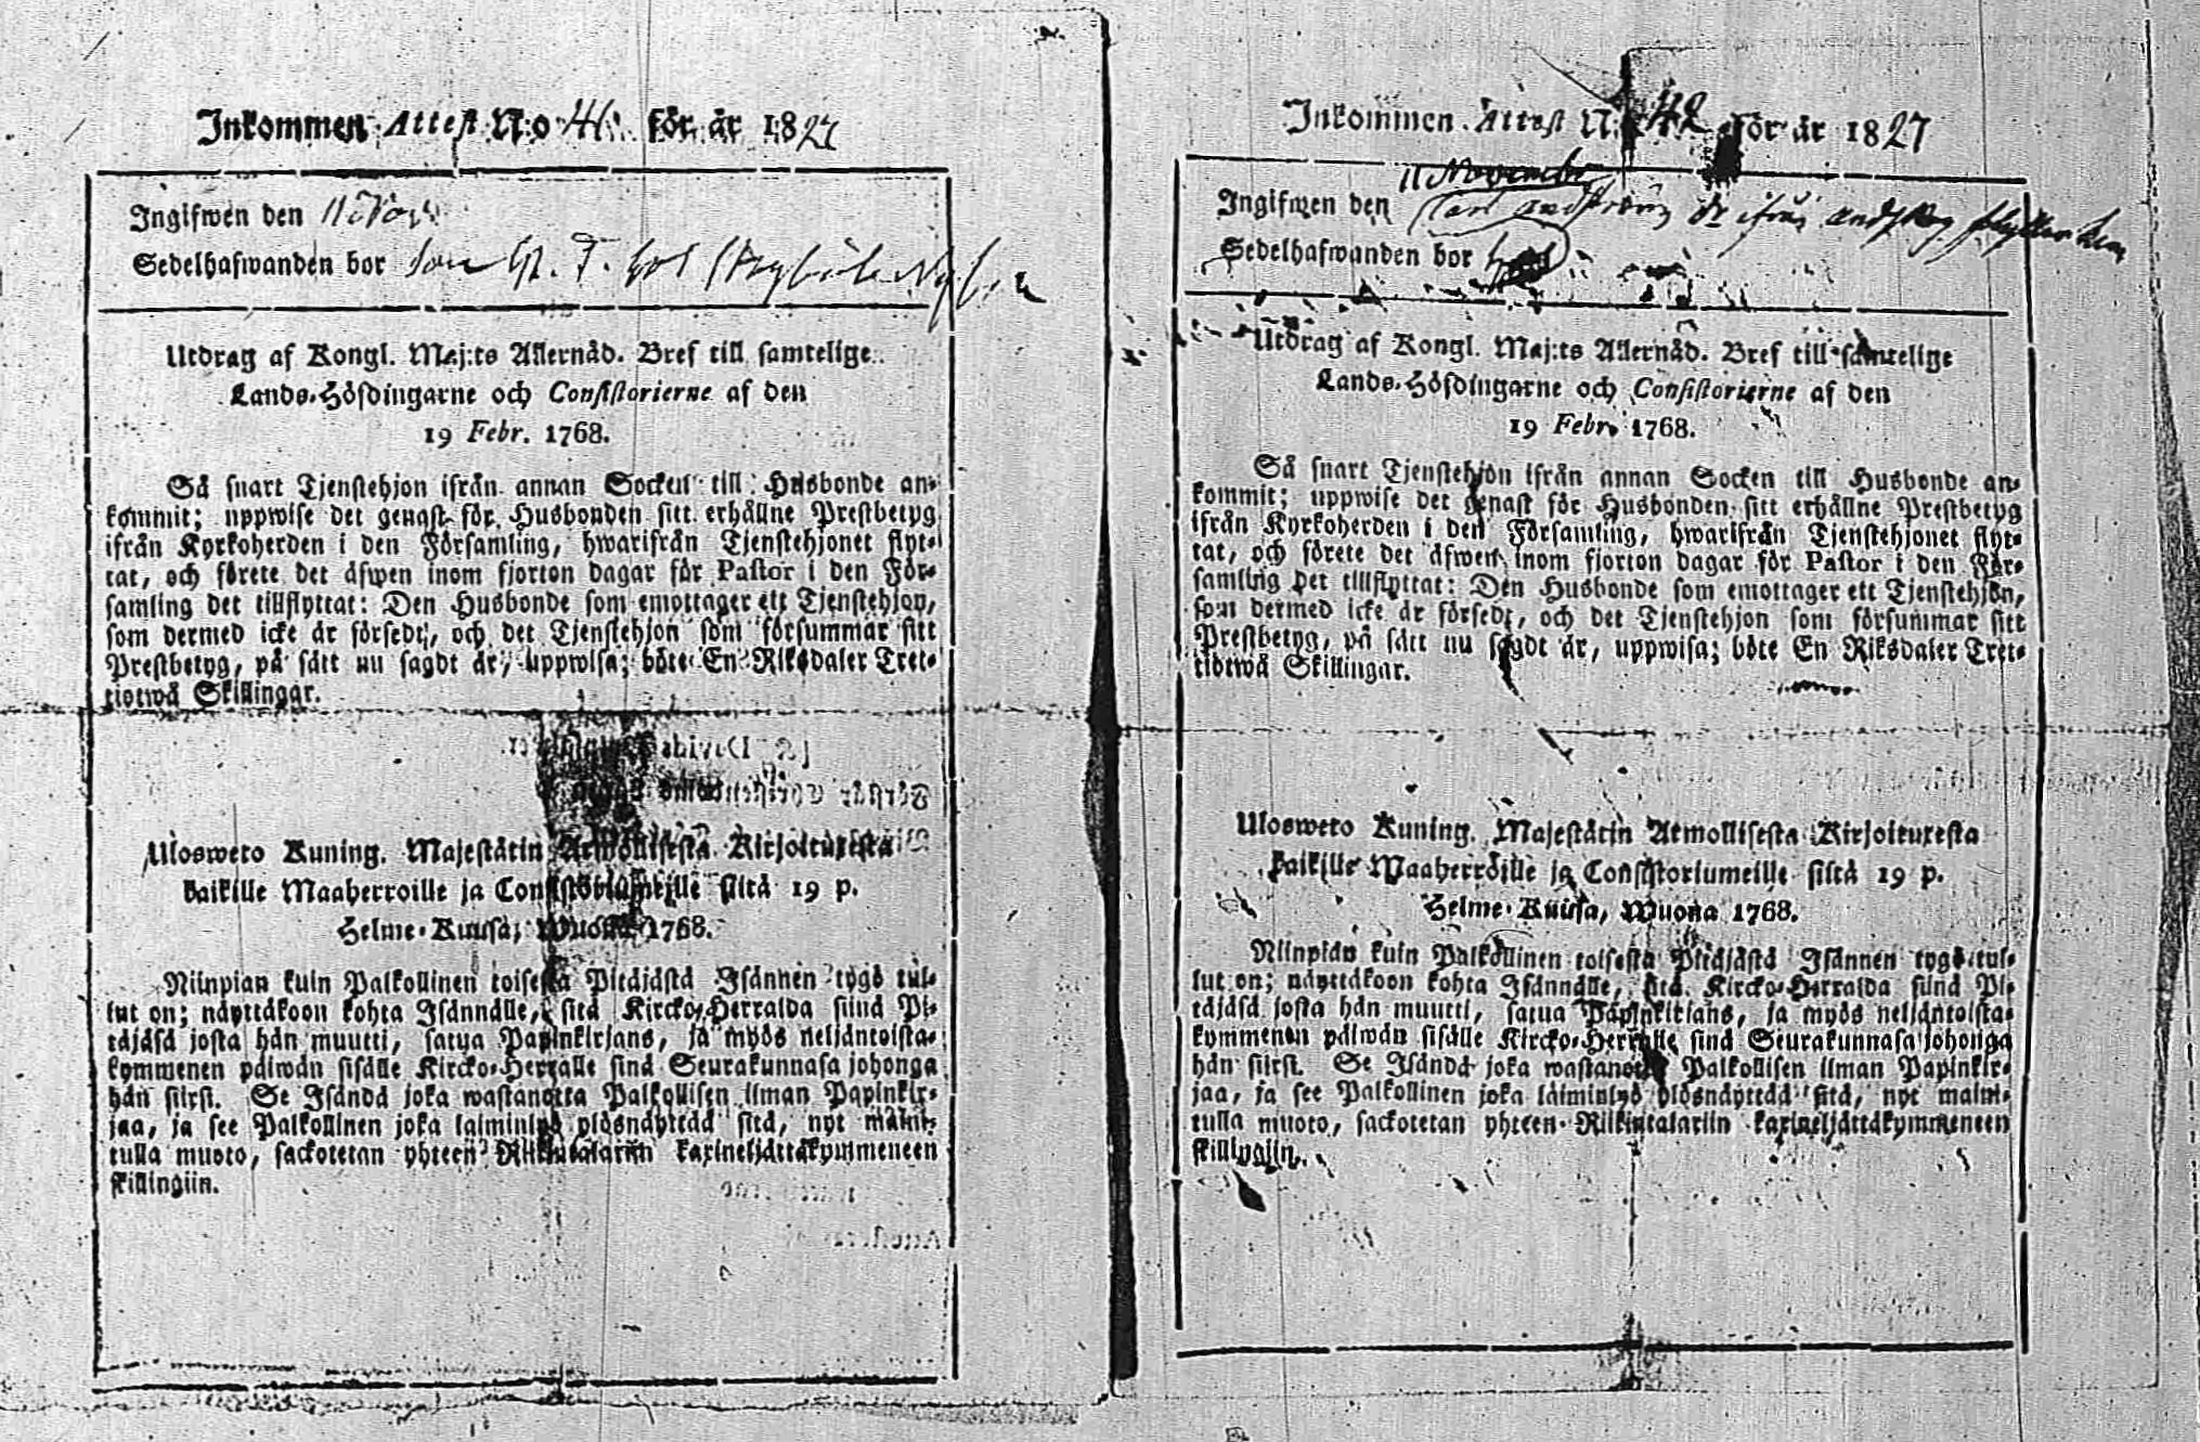 Inkommen Attest N:o 41 för år 1827
Ingifwen den 11 Nov
Sedelhafwanden bor
Utdrag af Kongl. Maj:ts Allernåd. Bref till samtelige
Lands-Höfdingarne och Consistorierne af den
19 Febr. 1768.
Så snart Tjenstehjon ifrån annan Socken till Husbonde an-
kommit; uppwise det genast för Husbonden sitt erhållne Prestbetyg
ifrån Kyrkoherden i den Församling, hwarifrån Tjenstehjonet flyt-
tat, och förete det äfwen inom fjorton dagar för Pastor i den För-
samling det tillflyttat: Den Husbonde som emottager ett Tjenstehjon,
som dermed icke är försedt, och det Tjenstehjon som försummar sitt
Prestbetyg, på sätt nu sagdt är, uppwisa; böte En Riksdaler Tret-
tiotwå Skillingar.
Ulosweto Kuning. Majestätin Armollisesta Kirjoituxesta
kaikille Maaherroille ja Consistoriumeille siltä 19 p.
Helme-Kuusa, Wuona 1768.
Niinpian kuin Palkollinen toisesta Pitäjästä Isännen tygö tul-
lut on; näyttäkoon kohta Isännälle, sitä Kircko-Herralda siinä Pi-
täjäsä josta hän muutti, saatua Papinkirjans, ja myös neljäntoista-
kymmenen päiwän sisälle Kircko-Herralle sinä Seurakunnasa johonga
hän siirsi. Se Isändä joka wastanotta Palkollisen ilman Papinkir-
jaa, ja see Palkollinen joka laiminlyö ylösnäyttää sitä, nyt mainit-
tulla muoto, sackotetan yhteen Riikintalariin kaxineljättäkymmeneen
skillingiin.
Inkommen Attest N:o 42 för år 1827
11 November
Ingifwen den
Sedelhafwanden bor
Utdrag af Kongl. Maj:ts Allernåd. Bref till samtelige
Lands-Höfdingarne och Consistorierne af den
19 Febr. 1768.
Så snart Tjenstehjon ifrån annan Socken till Husbonde an-
kommit; uppwise det genast för Husbonden sitt erhållne Prestbetyg
ifrån Kyrkoherden i den Församling, hwarifrån Tjenstehjonet flyt-
tat, och förete det äfwen inom fjorton dagar för Pastor i den För-
samling det tillflyttat: Den Husbonde som emottager ett Tjenstehjon,
som dermed icke är försedt, och det Tjenstehjon som försummar sitt
Prestbetyg, på sätt nu sagdt är, uppwisa; böte En Riksdaler Tret-
tiotwå Skillingar.
Ulosweto Kuning. Majestätin Armollisesta Kirjoituxesta
kaikille Maaherroille ja Consistoriumeille siltä 19 p.
Helme-Kuusa, Wuona 1768.
Niinpian kuin Palkollinen toisesta Pitäjästä Isännen tygö tul-
lut on; näyttäkoon kohta Isännälle, sitä Kircko-Herralda siinä Pi-
täjäsä josta hän muutti, saatua Papinkirjans, ja myös neljäntoista-
kymmenen päiwän sisälle Kircko-Herralle sinä Seurakunnasa johonga
hän siirsi. Se Isändä joka wastanotta Palkollisen ilman Papinkir-
jaa, ja see Palkollinen joka laiminlyö ylösnäyttää sitä, nyt mainit-
tulla muoto, sackotetan yhteen Riikintalariin kaxineljättäkymmeneen
skillingiin.